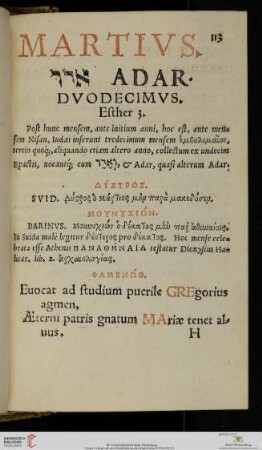 113
MARTIVS.
אדר ADAR.
DVODECIMVS.
Esther 3.
Post hunc mensem, ante initium anni, hoc est, ante men-
sem Nisan, Iudæi inserunt tredecimum mensem ἐμβολιμαῖον,
tertio quoq;, aliquando etiam altero anno, collectum ex undecim
Epactis, uocantq; eum וְאֲדָר, & Adar, quasi alterum Adar.
ΔΥΣΤΡΟΣ.
SVID. Δύστρος ὁ μάρτιος μὴν παρὰ μακεδόσιν.
ΜΟΥΝΥΧΙΩΝ.
VARINVS. Μουνυχιὼν ὁ δέκατος μὴν παρ' ἀθηναίοις.
In Suida male legitur δεύτερος pro δέκατος. Hoc mense cele-
brata esse Athenis ΠΑΝΑΘΗΝΑΙΑ testatur Dionysius Hali
licar. lib. 2. ἀρχαιολογίας.
ΦΑΜΕΝΩΘ.
Euocat ad studium puerile GREgorius
agmen,
Æterni patris gnatum MAriæ tenet al-
uus.
H